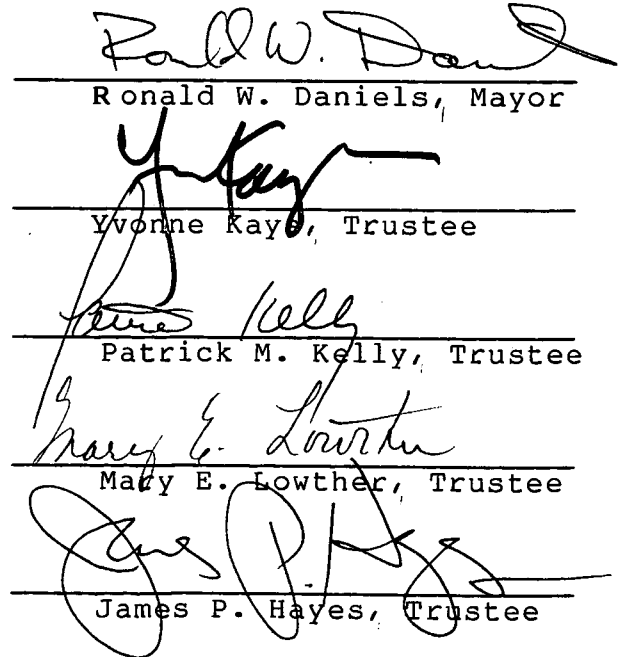 Ronald W. Dani
Ronald W. Daniels, Mayor
Yvonne Kaye, Trustee
Kelly
Patrick M. Kelly, Trustee
Mary E. Lowther
Mary E. Lowther, Trustee
James P. Hayes
James P. Hayes, Trustee